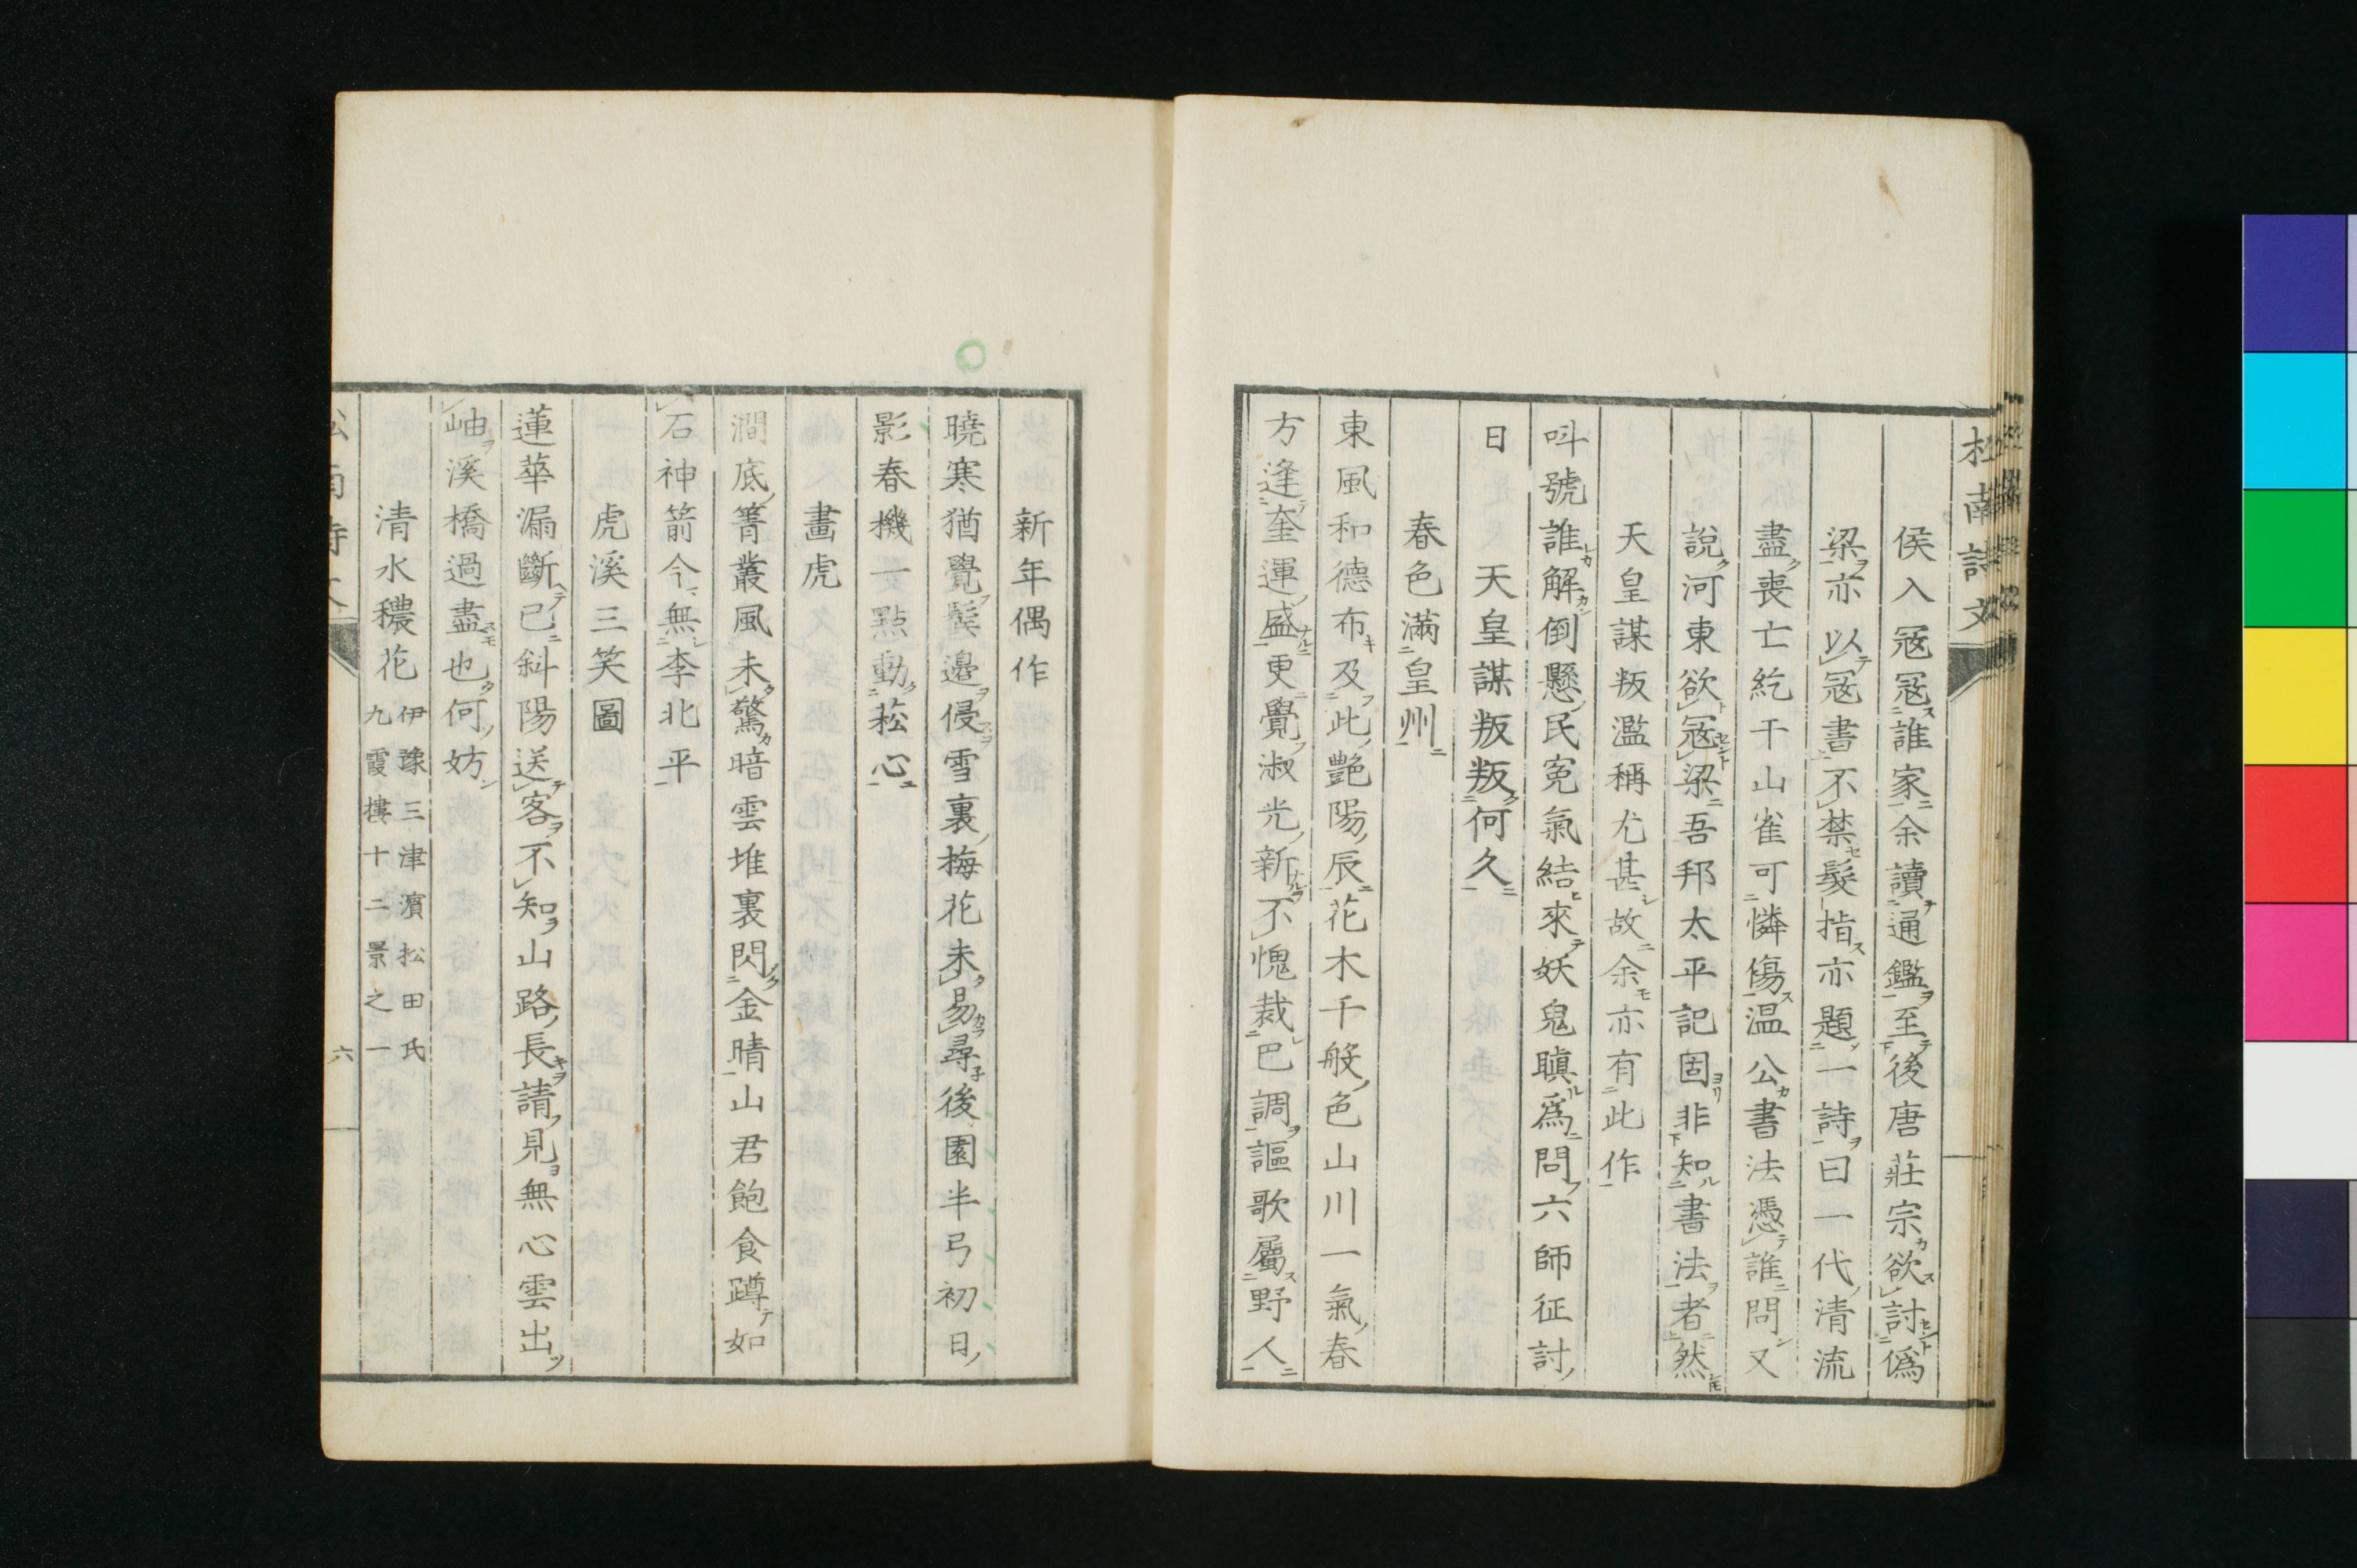 松南詩文
侯入寇寇誰家余讀通鑑至後唐莊宗欲討僞
梁亦以寇書不禁髮指亦題一詩曰一代清流
盡喪亡紇干山雀可憐傷温公書法憑誰問又
説河東欲寇梁吾邦太平記固非知書法者然
天皇謀叛濫稱尤甚故余亦有此作
呌號誰解倒懸民寃氣結來妖鬼瞋爲問六師征討
日　天皇謀叛叛何久
春色滿皇州
東風和德布及此艶陽辰花木千般色山川一氣春
方逢奎運盛更覺淑光新不愧裁巴調謳歌屬野人
新年偶作
曉寒猶覺鬂邊侵雪裏梅花未易尋後園半弓初日
影春機一點動菘心
畫虎
澗底箐叢風未驚暗雲堆裏閃金晴山君飽食蹲如
石神箭今無李北平
虎溪三笑圖
蓮華漏斷已斜陽送客不知山路長請見無心雲出
岫溪橋過盡也何妨
清水穠花
伊豫三津濵松田氏
九霞樓十二景之一
六